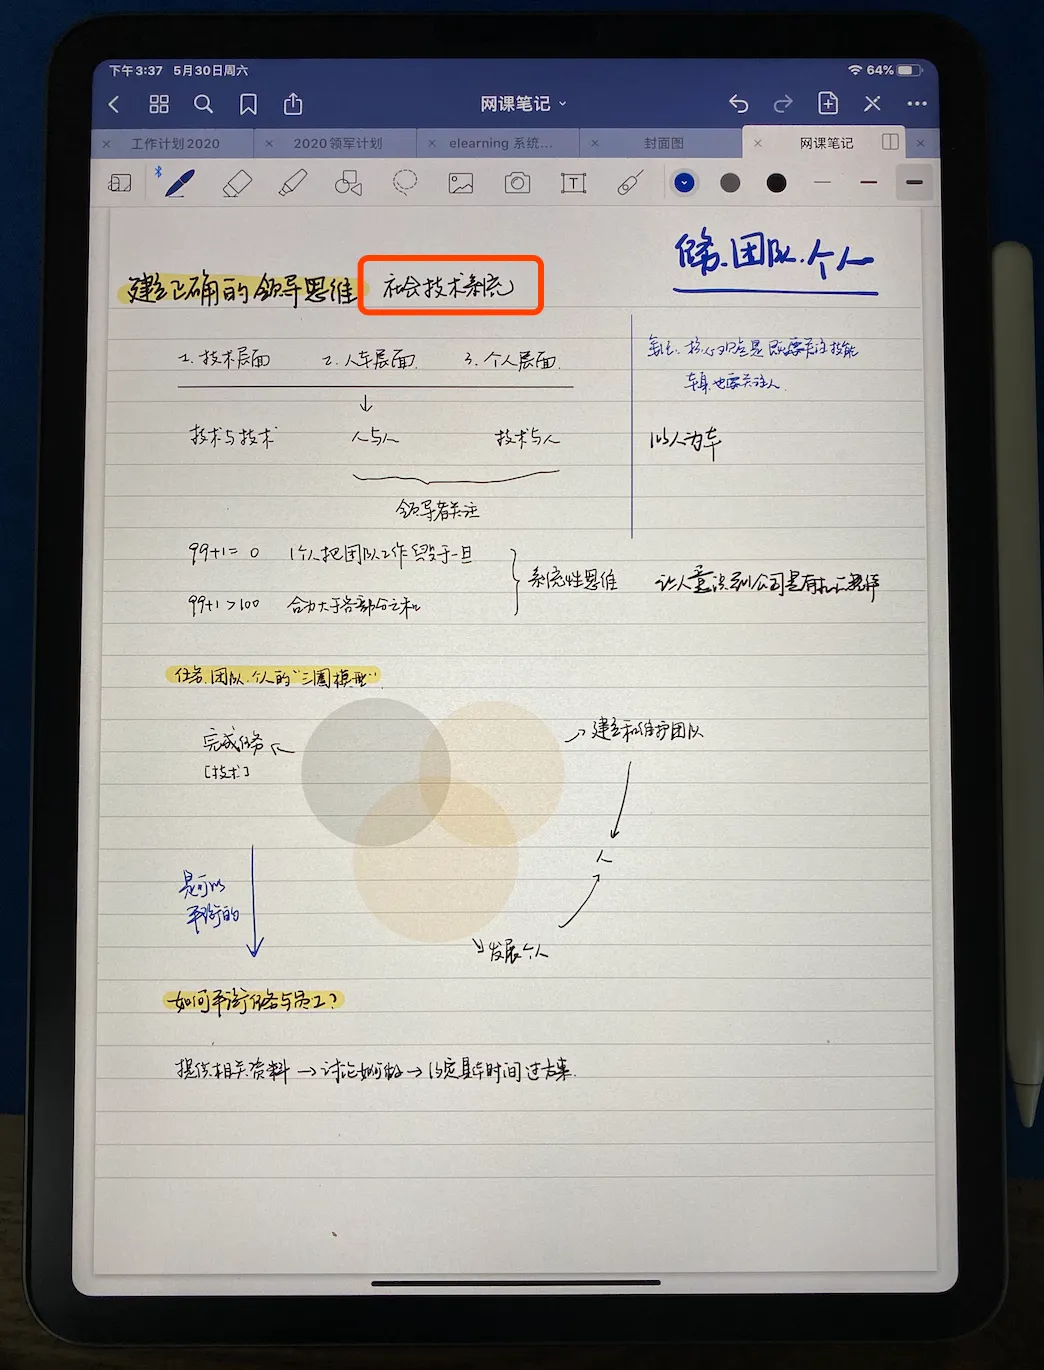 下午3:37 5月30日周六 64%
网课笔记
工作计划2020 2020领军计划 elearning 系统... 封面图 网课笔记
任务.团队.个人
建立正确的领导思维 社会技术系统
1.技术层面 2.人车层面 3.个人层面
核心观点是既要关注技能
也要关注人
技术与技术 人与人 技术与人
以人为车
领导者关注
99+1=0 1个人把团队工作毁于一旦
系统性思维 让人意识到公司是有
99+1>100 合力大于各部分之和
任务.团队.个人的"三圈模型"
完成任务 建立和维护团队
[技术]
人
是可以
平衡的
发展个人
如何平衡任务与员工?
提供相关资料→讨论如何做→